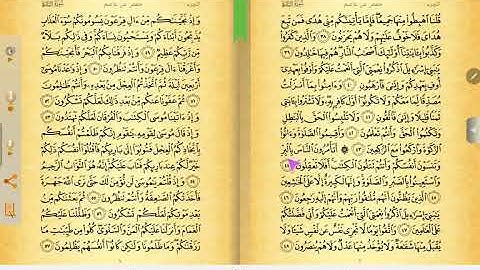 قُلْنَا ٱهْبِطُوا۟ مِنْهَا جَمِيعًا فَإِمَّا يَأْتِيَنَّكُم مِّنِّى هُدًى فَمَن تَبِعَ
هُدَاىَ فَلَا خَوْفٌ عَلَيْهِمْ وَلَا هُمْ يَحْزَنُونَ ٣٨ وَٱلَّذِينَ كَفَرُوا۟
وَكَذَّبُوا۟ بِـَٔايَـٰتِنَآ أُو۟لَـٰٓئِكَ أَصْحَـٰبُ ٱلنَّارِ هُمْ فِيهَا خَـٰلِدُونَ ٣٩
يَـٰبَنِىٓ إِسْرَٰٓءِيلَ ٱذْكُرُوا۟ نِعْمَتِىَ ٱلَّتِىٓ أَنْعَمْتُ عَلَيْكُمْ وَأَوْفُوا۟ بِعَهْدِىٓ
أُوفِ بِعَهْدِكُمْ وَإِيَّـٰىَ فَٱرْهَبُونِ ٤٠ وَءَامِنُوا۟ بِمَآ أَنزَلْتُ
مُصَدِّقًا لِّمَا مَعَكُمْ وَلَا تَكُونُوٓا۟ أَوَّلَ كَافِرٍۭ بِهِۦ وَلَا تَشْتَرُوا۟ بِـَٔايَـٰتِى
ثَمَنًا قَلِيلًا وَإِيَّـٰىَ فَٱتَّقُونِ ٤١ وَلَا تَلْبِسُوا۟ ٱلْحَقَّ بِٱلْبَـٰطِلِ
وَتَكْتُمُوا۟ ٱلْحَقَّ وَأَنتُمْ تَعْلَمُونَ ٤٢ وَأَقِيمُوا۟ ٱلصَّلَوٰةَ وَءَاتُوا۟
ٱلزَّكَوٰةَ وَٱرْكَعُوا۟ مَعَ ٱلرَّٰكِعِينَ ٤٣ ۞ أَتَأْمُرُونَ ٱلنَّاسَ بِٱلْبِرِّ
وَتَنسَوْنَ أَنفُسَكُمْ وَأَنتُمْ تَتْلُونَ ٱلْكِتَـٰبَ أَفَلَا تَعْقِلُونَ ٤٤
وَٱسْتَعِينُوا۟ بِٱلصَّبْرِ وَٱلصَّلَوٰةِ وَإِنَّهَا لَكَبِيرَةٌ إِلَّا عَلَى ٱلْخَـٰشِعِينَ
٤٥ ٱلَّذِينَ يَظُنُّونَ أَنَّهُم مُّلَـٰقُوا۟ رَبِّهِمْ وَأَنَّهُمْ إِلَيْهِ رَٰجِعُونَ ٤٦
يَـٰبَنِىٓ إِسْرَٰٓءِيلَ ٱذْكُرُوا۟ نِعْمَتِىَ ٱلَّتِىٓ أَنْعَمْتُ عَلَيْكُمْ وَأَنِّى فَضَّلْتُكُمْ
عَلَى ٱلْعَـٰلَمِينَ ٤٧ وَٱتَّقُوا۟ يَوْمًا لَّا تَجْزِى نَفْسٌ عَن نَّفْسٍ شَيْـًٔا وَلَا
يُقْبَلُ مِنْهَا شَفَـٰعَةٌ وَلَا يُؤْخَذُ مِنْهَا عَدْلٌ وَلَا هُمْ يُنصَرُونَ ٤٨
وَإِذْ نَجَّيْنَـٰكُم مِّنْ ءَالِ فِرْعَوْنَ يَسُومُونَكُمْ سُوٓءَ ٱلْعَذَابِ
يُذَبِّحُونَ أَبْنَآءَكُمْ وَيَسْتَحْيُونَ نِسَآءَكُمْ وَفِى ذَٰلِكُم بَلَآءٌ مِّن
رَّبِّكُمْ عَظِيمٌ ٤٩ وَإِذْ فَرَقْنَا بِكُمُ ٱلْبَحْرَ فَأَنجَيْنَـٰكُمْ
وَأَغْرَقْنَآ ءَالَ فِرْعَوْنَ وَأَنتُمْ تَنظُرُونَ ٥٠ وَإِذْ وَٰعَدْنَا مُوسَىٰٓ
أَرْبَعِينَ لَيْلَةً ثُمَّ ٱتَّخَذْتُمُ ٱلْعِجْلَ مِنۢ بَعْدِهِۦ وَأَنتُمْ ظَـٰلِمُونَ
٥١ ثُمَّ عَفَوْنَا عَنكُم مِّنۢ بَعْدِ ذَٰلِكَ لَعَلَّكُمْ تَشْكُرُونَ ٥٢
وَإِذْ ءَاتَيْنَا مُوسَى ٱلْكِتَـٰبَ وَٱلْفُرْقَانَ لَعَلَّكُمْ تَهْتَدُونَ ٥٣
وَإِذْ قَالَ مُوسَىٰ لِقَوْمِهِۦ يَـٰقَوْمِ إِنَّكُمْ ظَلَمْتُمْ أَنفُسَكُم
بِٱتِّخَاذِكُمُ ٱلْعِجْلَ فَتُوبُوٓا۟ إِلَىٰ بَارِئِكُمْ فَٱقْتُلُوٓا۟ أَنفُسَكُمْ ذَٰلِكُمْ
خَيْرٌ لَّكُمْ عِندَ بَارِئِكُمْ فَتَابَ عَلَيْكُمْ إِنَّهُۥ هُوَ ٱلتَّوَّابُ ٱلرَّحِيمُ
٥٤ وَإِذْ قُلْتُمْ يَـٰمُوسَىٰ لَن نُّؤْمِنَ لَكَ حَتَّىٰ نَرَى ٱللَّهَ جَهْرَةً
فَأَخَذَتْكُمُ ٱلصَّـٰعِقَةُ وَأَنتُمْ تَنظُرُونَ ٥٥ ثُمَّ بَعَثْنَـٰكُم مِّنۢ
بَعْدِ مَوْتِكُمْ لَعَلَّكُمْ تَشْكُرُونَ ٥٦ وَظَلَّلْنَا عَلَيْكُمُ
ٱلْغَمَامَ وَأَنزَلْنَا عَلَيْكُمُ ٱلْمَنَّ وَٱلسَّلْوَىٰ كُلُوا۟ مِن طَيِّبَـٰتِ مَا
رَزَقْنَـٰكُمْ وَمَا ظَلَمُونَا وَلَـٰكِن كَانُوٓا۟ أَنفُسَهُمْ يَظْلِمُونَ ٥٧